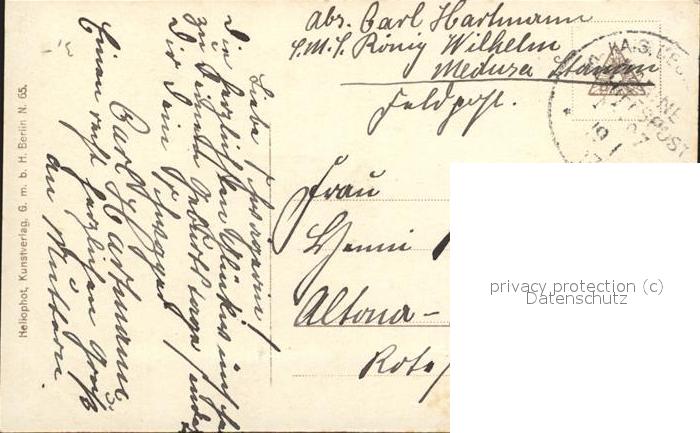 Abs. Carl Hartmann
S.M.S. König Wilhelm
Medusa
Feldpost.
Frau
Altona-
Liebe Schwägerin!
Die herzlichsten Glückwünsche
zu Deinem Geburtstage sendet
Dir Dein Schwager
Carl Hartmann
Einen recht herzlichen Gruß
an Muttern.
Heliophot, Kunstverlag, G. m. b. H. Berlin N. 65.
privacy protection (c)
Datenschutz